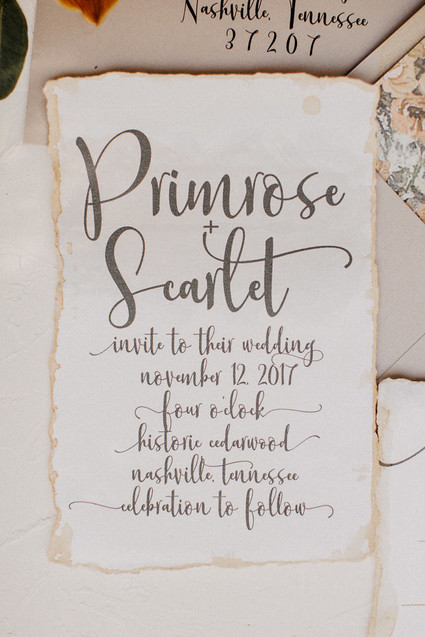 Nashville, Tennessee
37207
Primrose
+
Scarlet
invite to their wedding
november 12, 2017
four o'clock
historic cedarwood
nashville, tennessee
celebration to follow